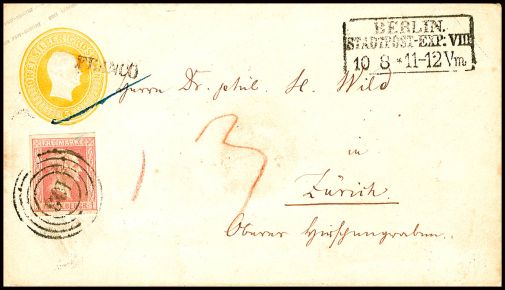 BERLIN.
STADTPOST-EXP: VIII
10 8 * 11-12 Vm.
FRANCO
Herrn Dr. phil. H. Wild
1 3
in
Zürich.
Oberer Hirschengraben.
FREIMARKE